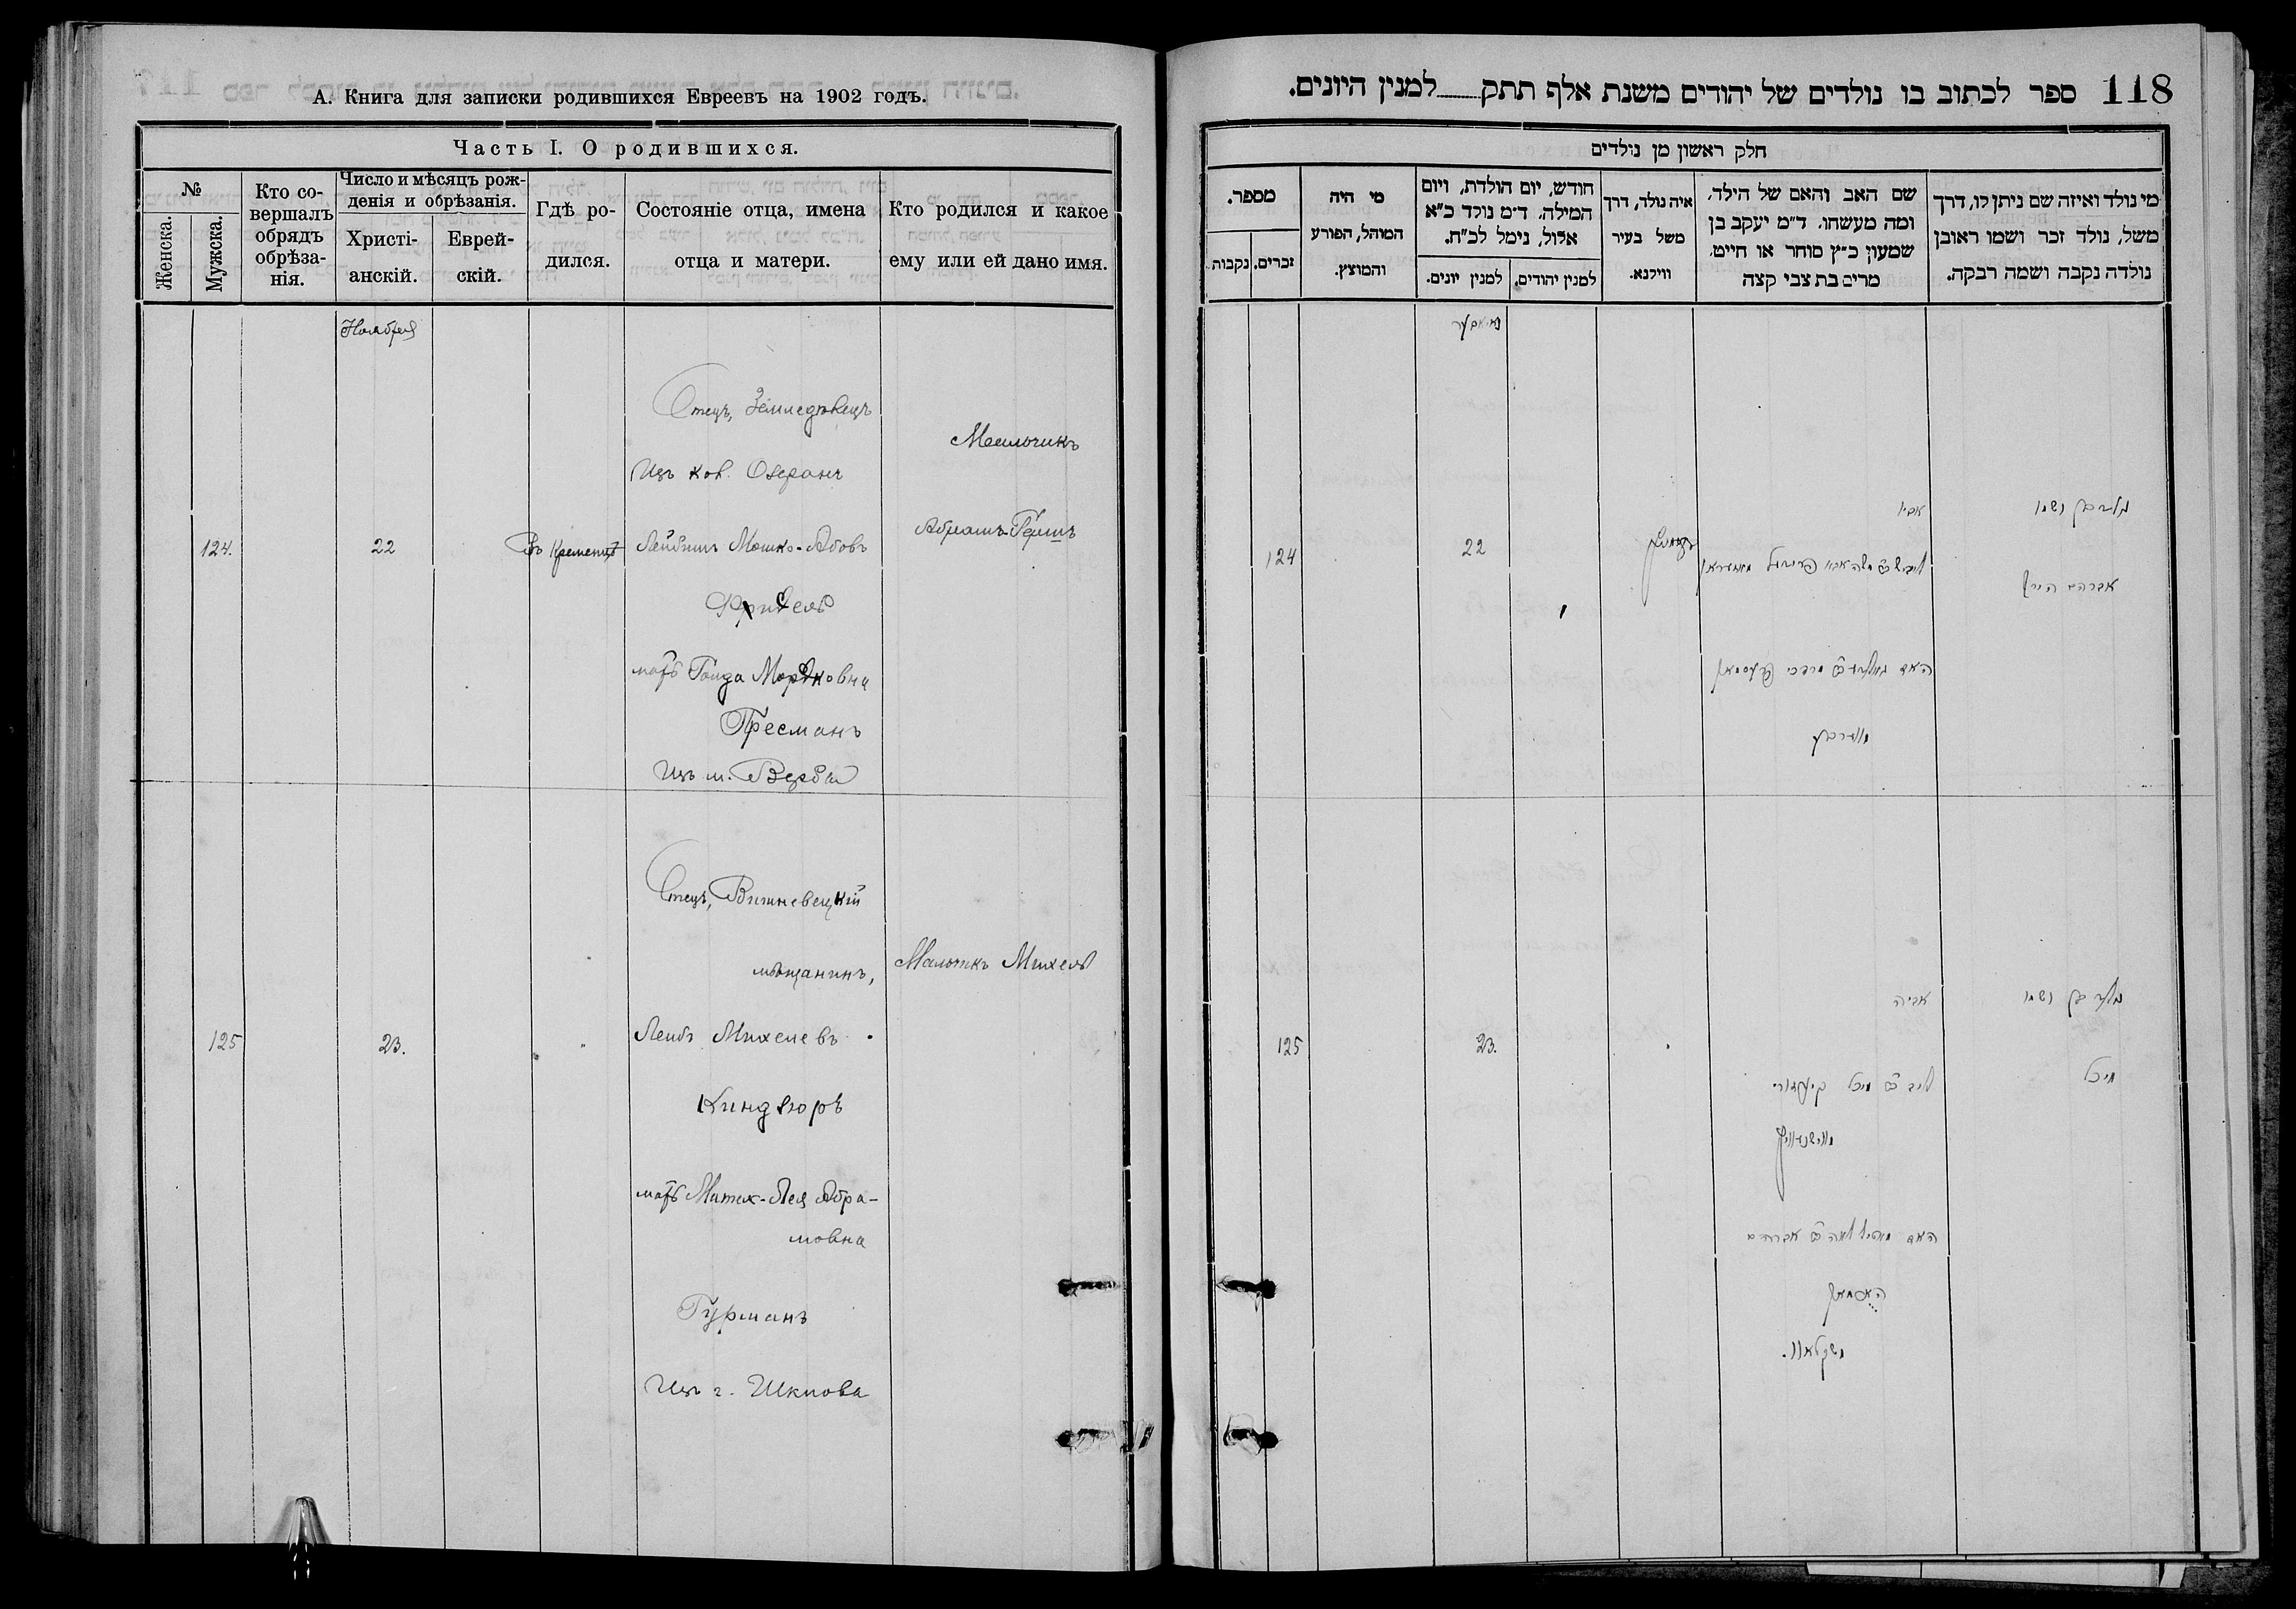 А. Книга для записки родившихся Евреевъ на 1902 годъ.
Часть I. О родившихся.
№
Женска.
Мужска.
Кто со-
вершалъ
обрядъ
обрѣза-
нія.
Число и мѣсяцъ рож-
денія и обрѣзанія.
Христі-
анскій.
Еврей-
скій.
Гдѣ ро-
дился.
Состояніе отца, имена
отца и матери.
Кто родился и какое
ему или ей дано имя.
Ноября
124.
22
Въ Кременцѣ
Отецъ, Земледѣлецъ
Изъ кол. Озеранъ
Лейбишъ Мошко-Абовъ
мать Голда Мордковна
Пресманъ
Изъ м. Вербы
Мальчикъ
Абрамъ-Гершъ
125
23.
"
Отецъ, Вишневецкій
мѣщанинъ,
Лейбъ Михелевъ
Киндзюръ
мать Мотях-Лея Абра-
мовна
Гурманъ
Изъ г. Шклова
Мальчикъ Михель
118 ספר לכתוב בו נולדים של יהודים משנת אלף תתק למנין היונים.
חלק ראשון מן נולדים
מי נולד ואיזה שם ניתן לו, דרך
משל, נולד זכר ושמו ראובן
נולדה נקבה ושמה רבקה.
שם האב והאם של הילד,
ומה מעשהו. ד"מ יעקב בן
שמעון כ"ץ סוחר או חייט,
מרים בת צבי קצה
איה נולד, דרך
משל בעיר
ווילנא.
חודש, יום הולדת, ויום
המילה. ד"מ נולד כ"א
אלול, נימל לכ"ח.
למנין יהודים.
למנין יונים.
מי היה
המוהל, הפורע
והמוצץ.
מספר.
זכרים.
נקבות.
ושמו
אברהם הירש
אביו
22
124
ושמו
מיכל
אביה
לייב מיכל
23.
125